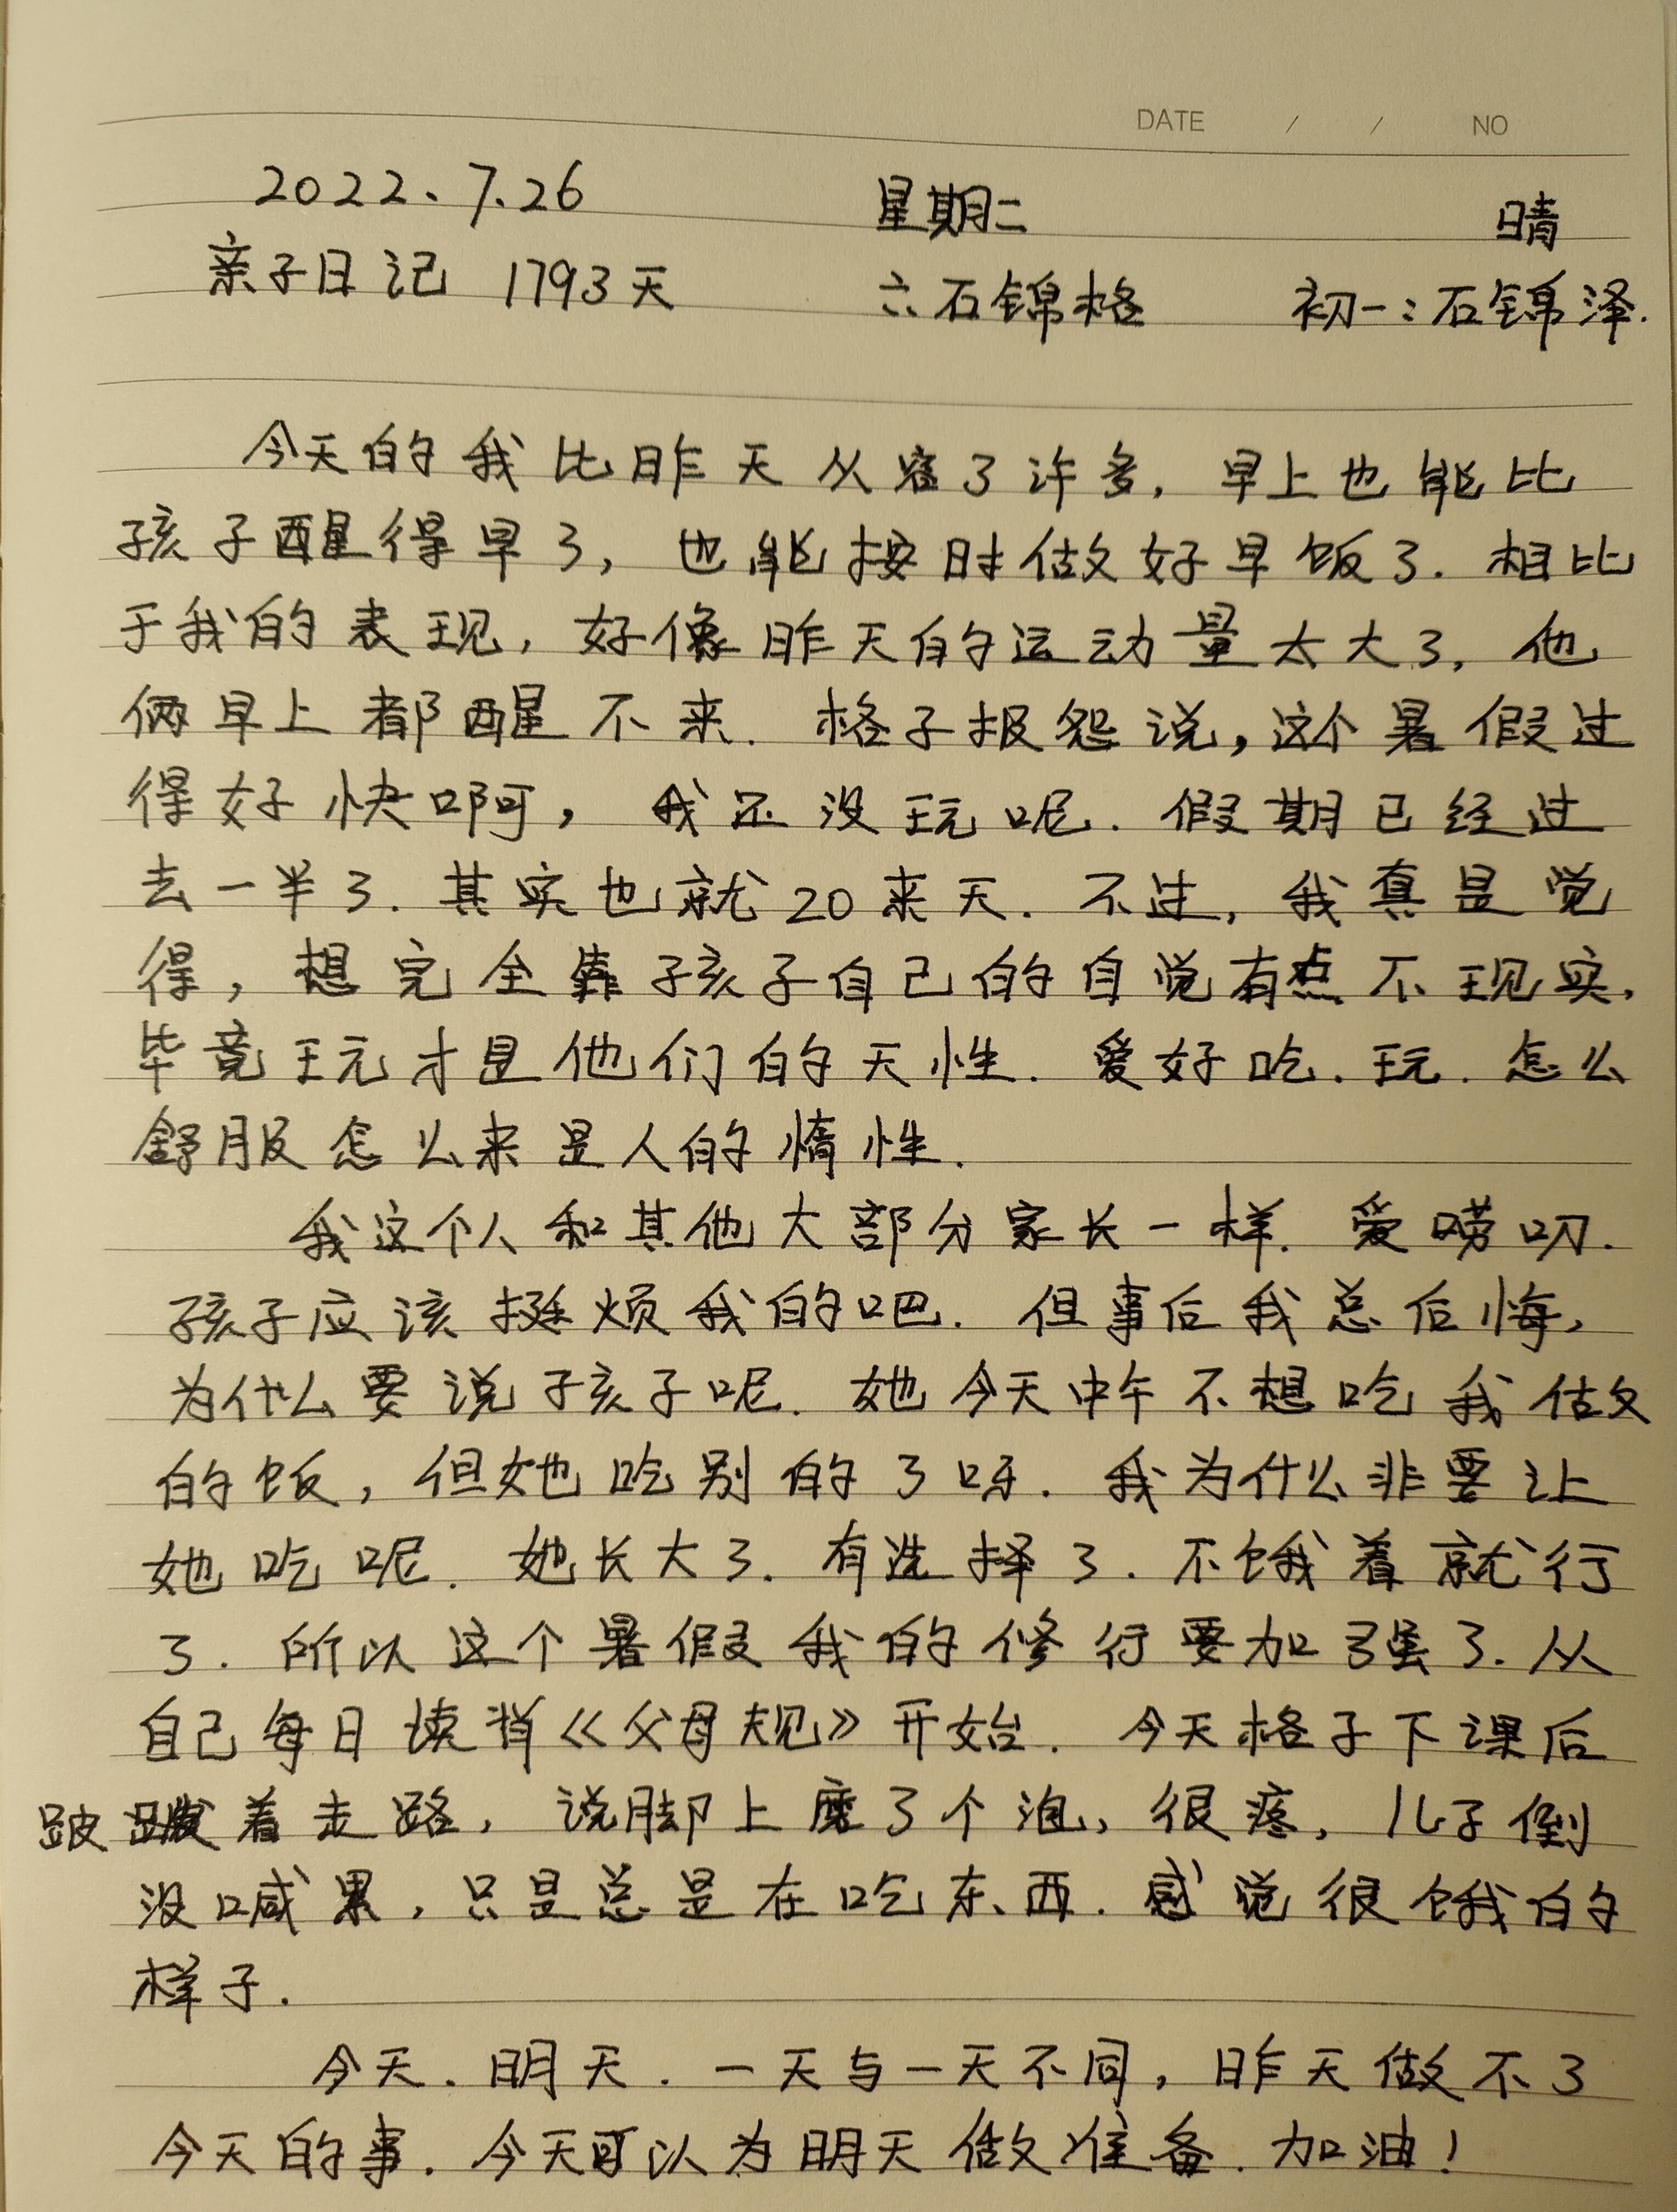 DATE / / NO
2022、7.26 星期二 晴
亲子日记 1793天 六石锦格 初一:石锦泽.
今天的我比昨天从容了许多,早上也能比
孩子醒得早了,也能按时做好早饭了.相比
于我的表现,好像昨天的运动量太大了,他
俩早上都醒不来.格子报怨说,这个暑假过
得好快啊,我还没玩呢.假期已经过
去一半了.其实也就20来天.不过,我真是觉
得,想完全靠孩子自己的自觉有点不现实,
毕竟玩才是他们的天性.爱好吃.玩.怎么
舒服怎么来是人的惰性.
我这个人和其他大部分家长一样.爱唠叨.
孩子应该挺烦我的吧.但事后我总后悔,
为什么要说孩子呢.她今天中午不想吃我做
的饭,但她吃别的了呀.我为什么非要让
她吃呢.她长大了.有选择了.不饿着就行
了.所以这个暑假我的修行要加强了.从
自己每日读背《父母规》开始.今天格子下课后
跛着走路,说脚上磨了个泡,很疼,儿子倒
没喊累,只是总是在吃东西.感觉很饿的
样子.
今天.明天.一天与一天不同,昨天做不了
今天的事.今天可以为明天做准备.加油!